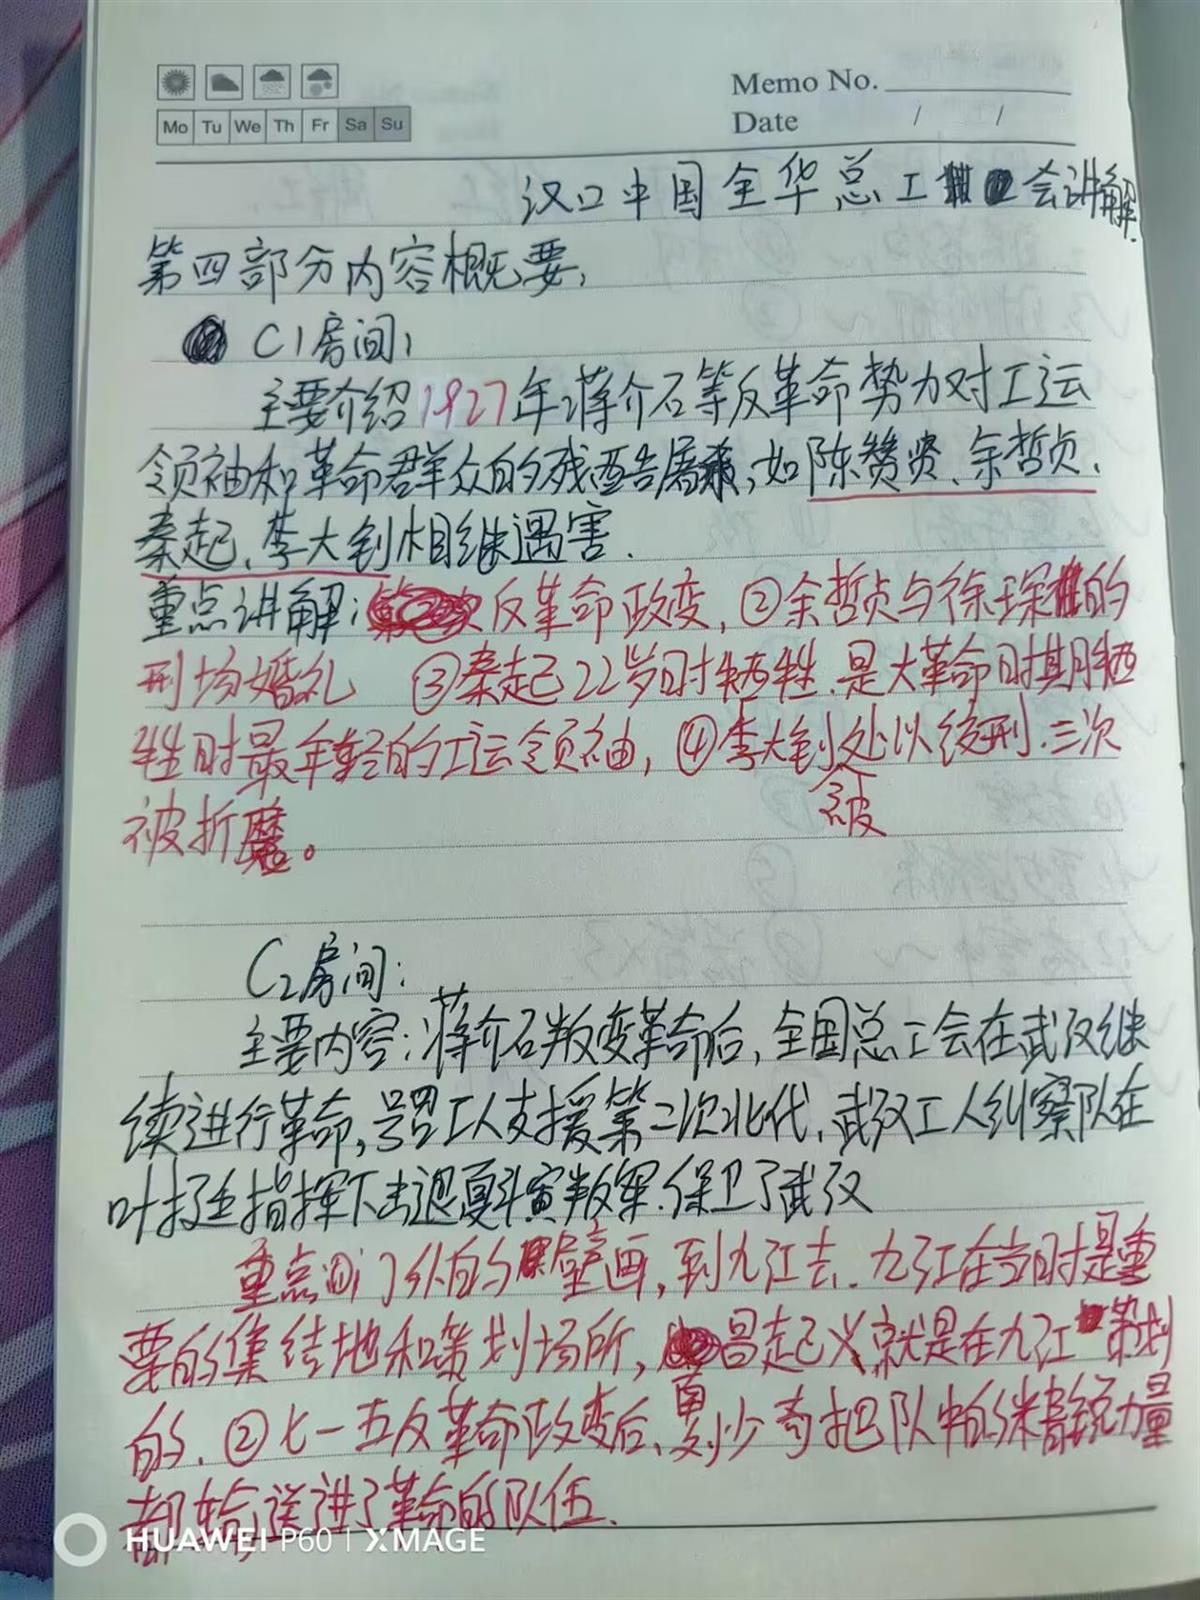 Memo No.
Mo Tu We Th Fr Sa Su
Date / /
汉口中国全华总工会讲解
第四部分内容概要,
C1房间,
主要介绍1927年,蒋介石等反革命势力对工运
领袖和革命群众的残酷屠杀,如陈赞贤、余哲贞、
秦起、李大钊相继遇害.
重点讲解: 反革命政变,②余哲贞与徐琛的
刑场婚礼 ③秦起22岁时牺牲.是大革命时期牺
牲时最年轻的工运领袖,④李大钊处以绞刑.三次
被
被折魔。
C2房间:
主要内容:蒋介石叛变革命后,全国总工会在武汉继
续进行革命,号召工人支援第二次北伐,武汉工人纠察队在
叶挺指挥下击退夏斗寅叛军.保卫了武汉
重点①门外的壁画,到九江去.九江在当时是重
要的集结地和策划场所, 昌起义就是在九江策划
的.②七一五反革命政变后、 少奇把队中的精锐力量
都输送进了革命的队伍.
HUAWEI P60 | XMAGE